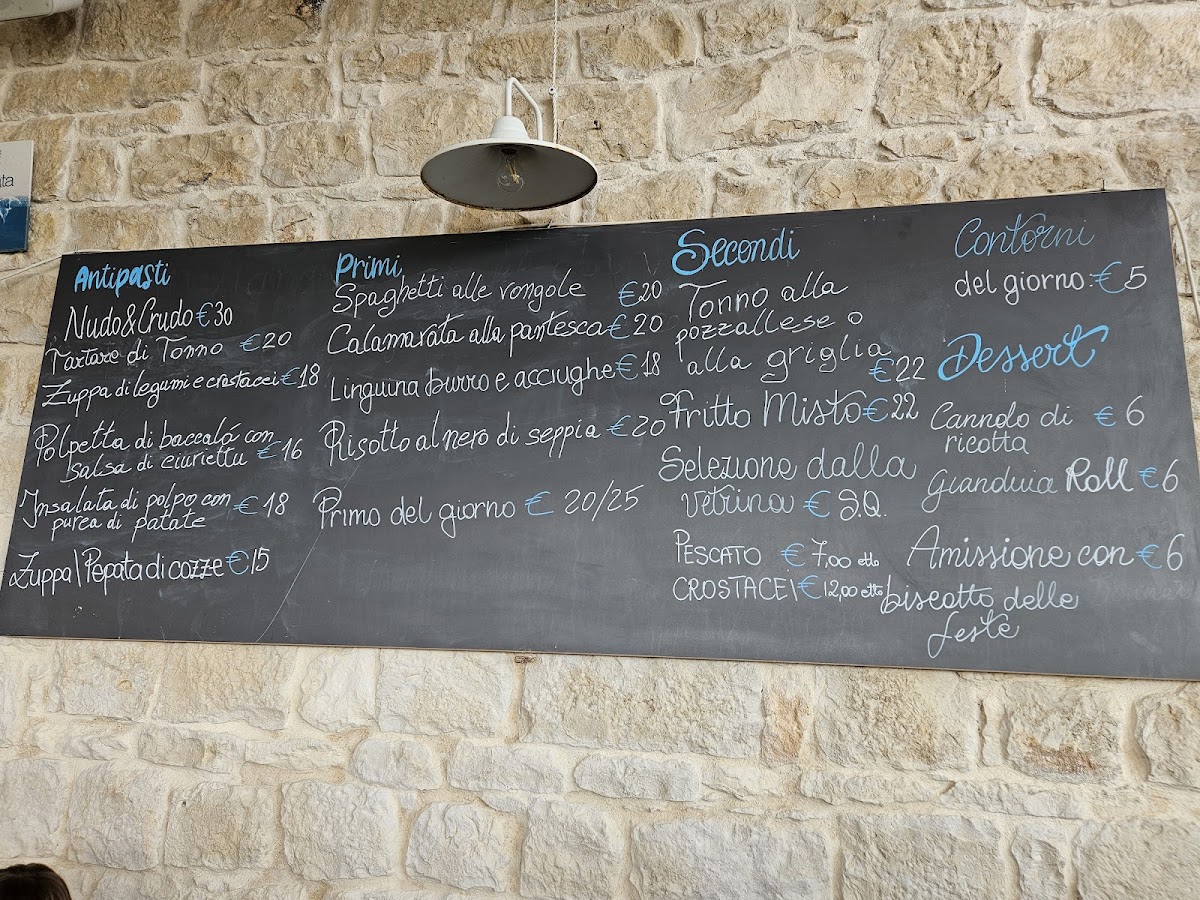 ta
Antipasti
Nudo&Crudo €30
Tartare di Tonno €20
Zuppa di legumi e crostacei €18
Polpetta di baccalá con
salsa di ciuriettu €16
Insalata di polpo con €18
purea di patate
Zuppa | Pepata di cozze €15
Primi
Spaghetti alle vongole €20
Calamarata alla pantesca €20
Linguina burro e acciughe €18
Risotto al nero di seppia €20
Primo del giorno € 20/25
Secondi
Tonno alla
pozzallese o
alla griglia
€22
Fritto Misto €22
Selezione dalla
Vetrina € S.Q.
PESCATO € 7,00 etto
CROSTACEI € 12,00 etto
Contorni
del giorno: €5
Dessert
Cannolo di € 6
ricotta
Gianduia Roll €6
Amissione con €6
biscotto delle
feste